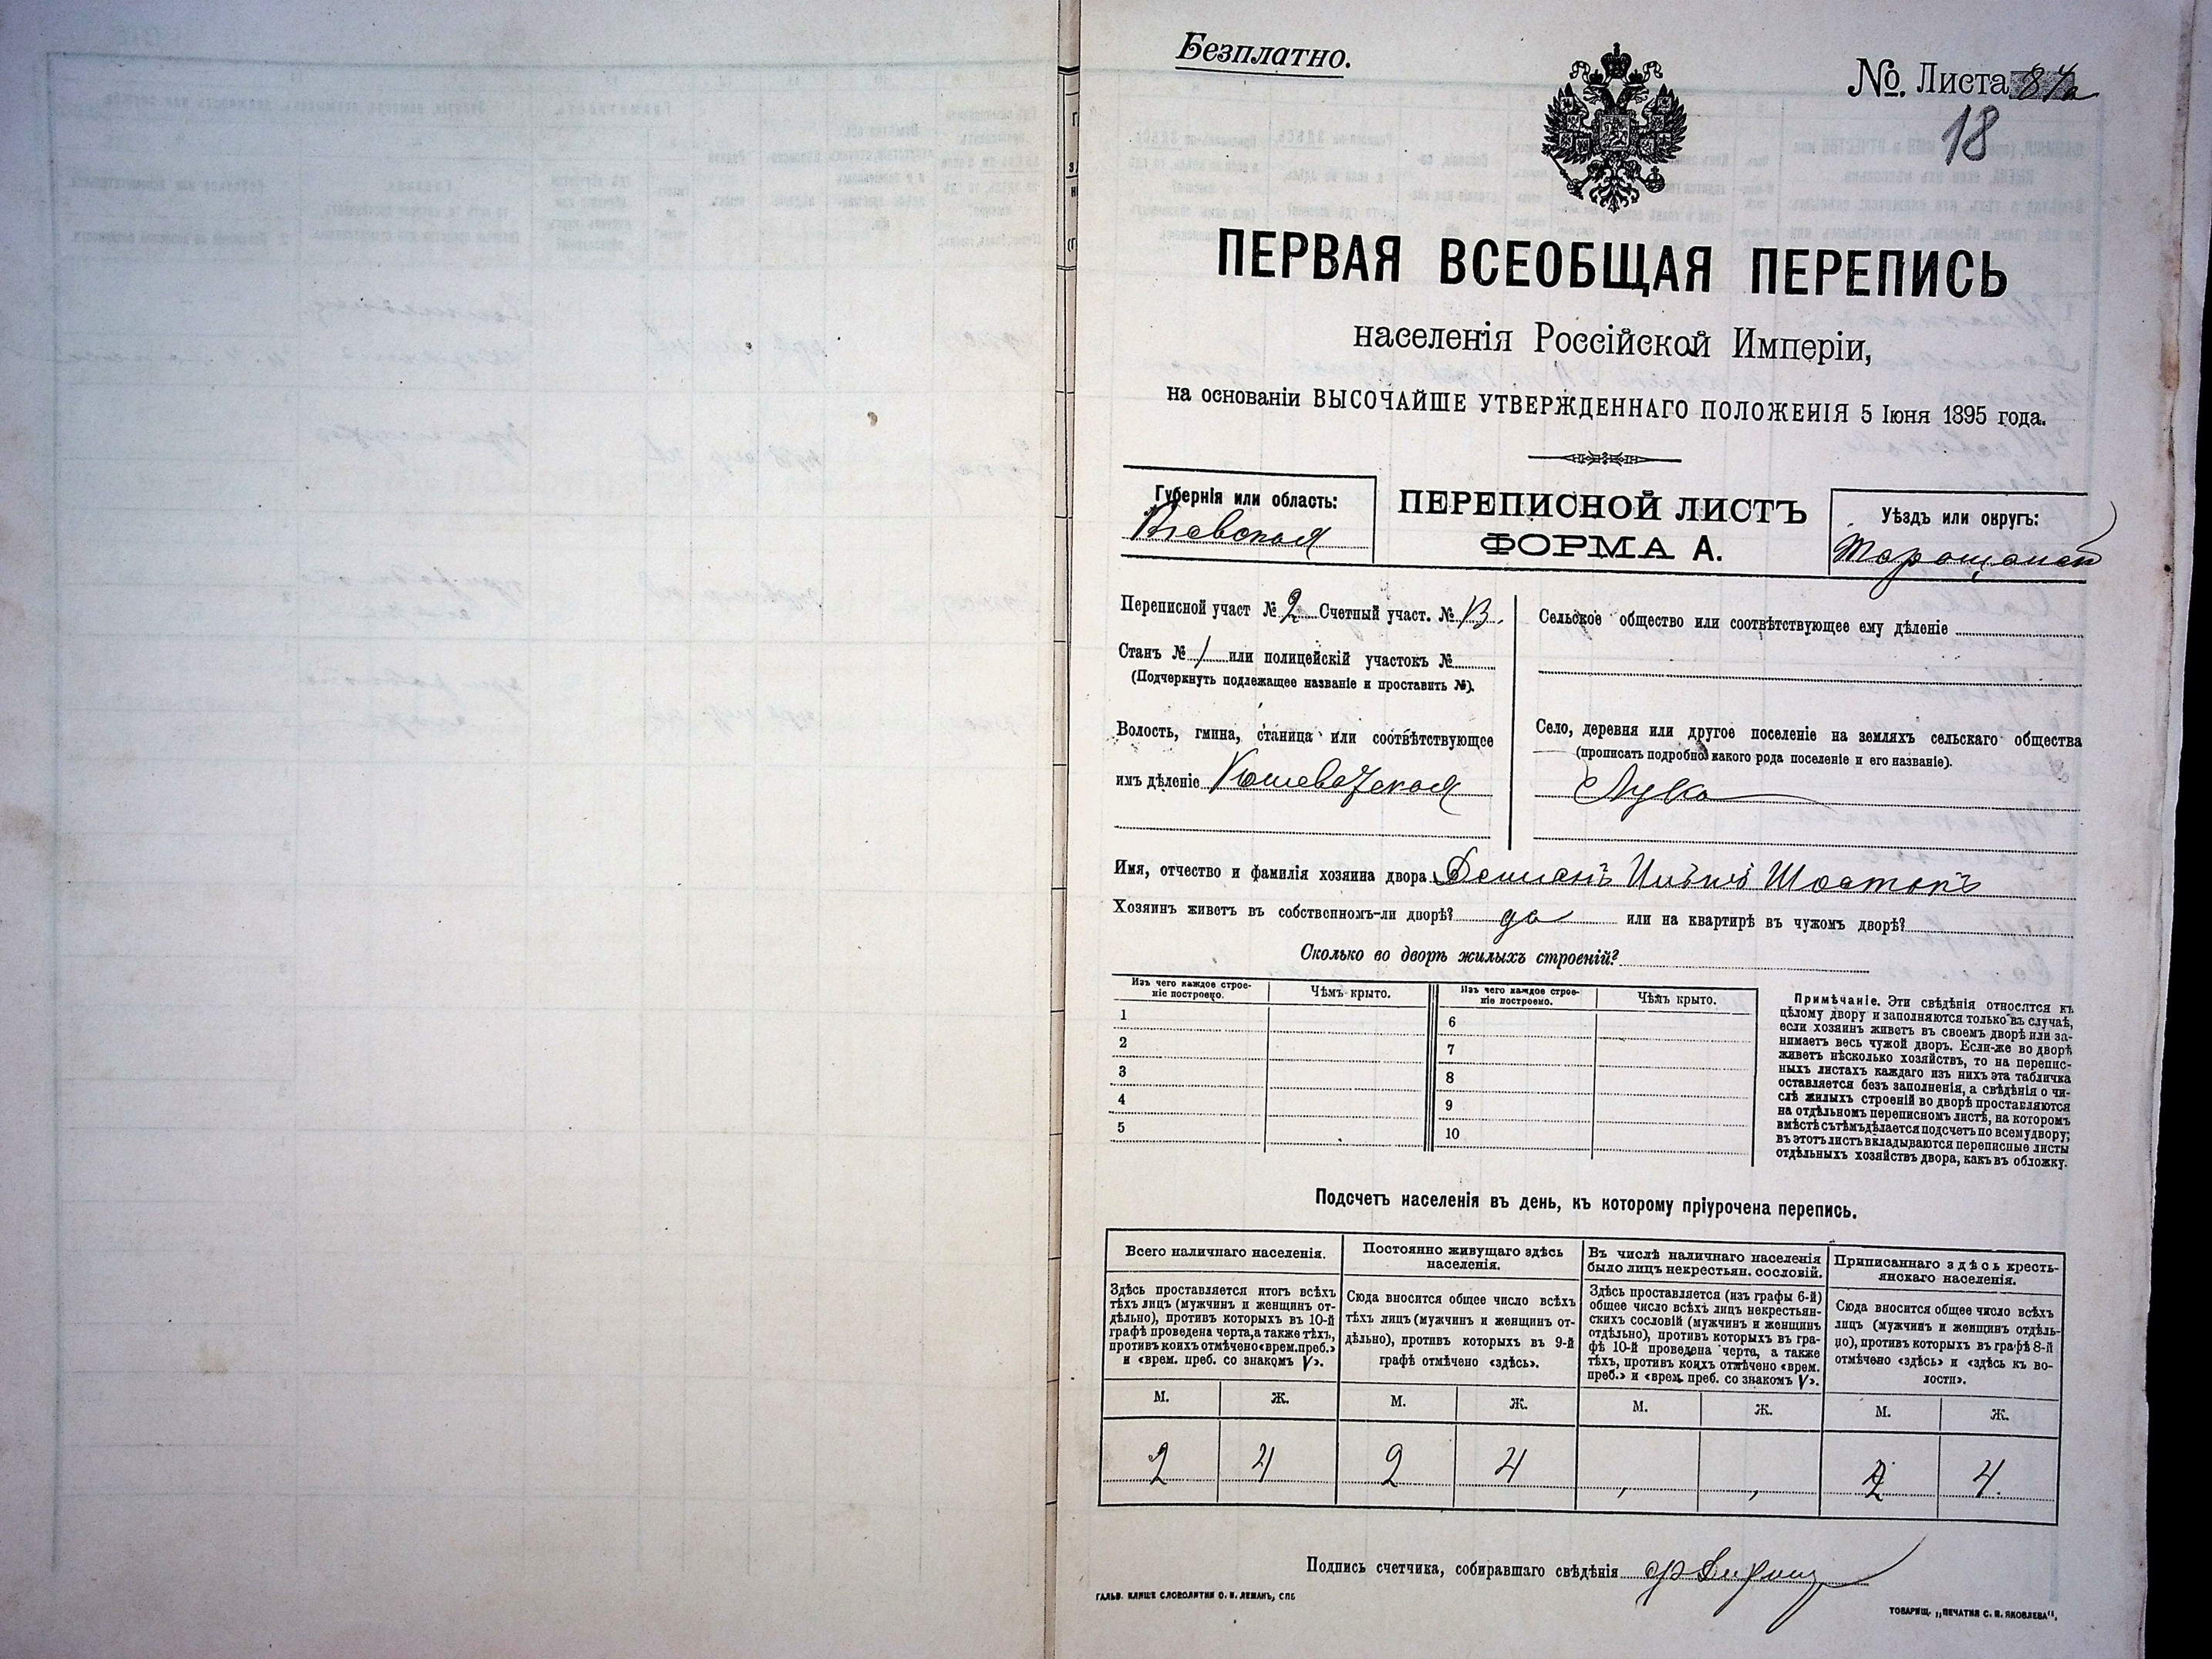 Безплатно.
№. Листа 84а
18
ПЕРВАЯ ВСЕОБЩАЯ ПЕРЕПИСЬ
населенія Россійской Имперіи,
на основаніи ВЫСОЧАЙШЕ УТВЕРЖДЕННАГО ПОЛОЖЕНІЯ 5 Іюня 1895 года.
Губернія или область:
Кіевская
ПЕРЕПИСНОЙ ЛИСТЪ
ФОРМА А.
Уѣздъ или округъ:
Таращанскій
Переписной участ № 2 Счетный участ. № 13.
Станъ № 1 или полицейскій участокъ №
(Подчеркнуть подлежащее названіе и проставить №).
Волость, гмина, станица или соотвѣтствующее
имъ дѣленіе Кошеватская
Сельское общество или соотвѣтствующее ему дѣленіе
Село, деревня или другое поселеніе на земляхъ сельскаго общества
(прописать подробно какого рода поселеніе и его названіе).
Лука
Имя, отчество и фамилія хозяина двора Демианъ Шостакъ
Хозяинъ живетъ въ собственномъ-ли дворѣ? да или на квартирѣ въ чужомъ дворѣ?
Сколько во дворѣ жилыхъ строеній?
Изъ чего каждое строе-
ніе построено.
Чѣмъ крыто.
1
2
3
4
5
Изъ чего каждое строе-
ніе построено.
Чѣмъ крыто.
6
7
8
9
10
Примѣчаніе. Эти свѣдѣнія относятся къ
цѣлому двору и заполняются только въ случаѣ,
если хозяинъ живетъ въ своемъ дворѣ или за-
нимаетъ весь чужой дворъ. Если-же во дворѣ
живетъ нѣсколько хозяйствъ, то на перепис-
ныхъ листахъ каждаго изъ нихъ эта табличка
оставляется безъ заполненія, а свѣдѣнія о чи-
слѣ жилыхъ строеній во дворѣ проставляются
на отдѣльномъ переписномъ листѣ, на которомъ
вмѣстѣ съ тѣмъ дѣлается подсчетъ по всему двору;
въ этотъ листъ вкладываются переписные листы
отдѣльныхъ хозяйствъ двора, какъ въ обложку.
Подсчетъ населенія въ день, къ которому пріурочена перепись.
Всего наличнаго населенія.
Здѣсь проставляется итогъ всѣхъ
тѣхъ лицъ (мужчинъ и женщинъ от-
дѣльно), противъ которыхъ въ 10-й
графѣ проведена черта, а также тѣхъ,
противъ коихъ отмѣчено «врем. преб.»
и «врем. преб. со знакомъ V».
М. Ж.
2 4
Постоянно живущаго здѣсь
населенія.
Сюда вносится общее число всѣхъ
тѣхъ лицъ (мужчинъ и женщинъ от-
дѣльно), противъ которыхъ въ 9-й
графѣ отмѣчено «здѣсь».
М. Ж.
2 4
Въ числѣ наличнаго населенія
было лицъ некрестьян. сословій.
Здѣсь проставляется (изъ графы 6-й)
общее число всѣхъ лицъ некрестьян-
скихъ сословій (мужчинъ и женщинъ
отдѣльно), противъ которыхъ въ гра-
фѣ 10-й проведена черта, а также
тѣхъ, противъ коихъ отмѣчено «врем.
преб.» и «врем. преб. со знакомъ V».
М. Ж.
Приписаннаго здѣсь кресть-
янскаго населенія.
Сюда вносится общее число всѣхъ
лицъ (мужчинъ и женщинъ отдѣль-
но), противъ которыхъ въ графѣ 8-й
отмѣчено «здѣсь» и «здѣсь къ во-
лости».
М. Ж.
2 4.
Подпись счетчика, собиравшаго свѣдѣнія
ГАЛЬВ. КЛИШЕ СЛОВОЛИТНИ О. И. ЛЕМАНЪ, СПБ
ТОВАРИЩ. „ПЕЧАТНЯ С. П. ЯКОВЛЕВА",